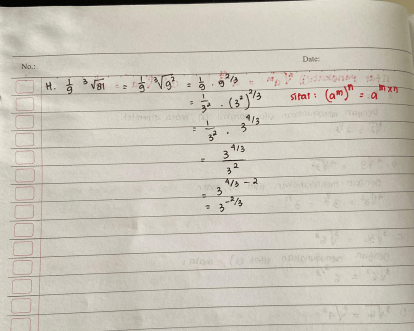 No.:
Date:
H. 1/9 ³√81 = = 1/9 · ³√9² = 1/9 · 9^2/3
= 1/3² · (3²)^2/3 sifat : (a^m)^n = a^m×n
= 1/3² · 3^4/3
= 3^4/3 / 3²
= 3^4/3 - 2
= 3^-2/3